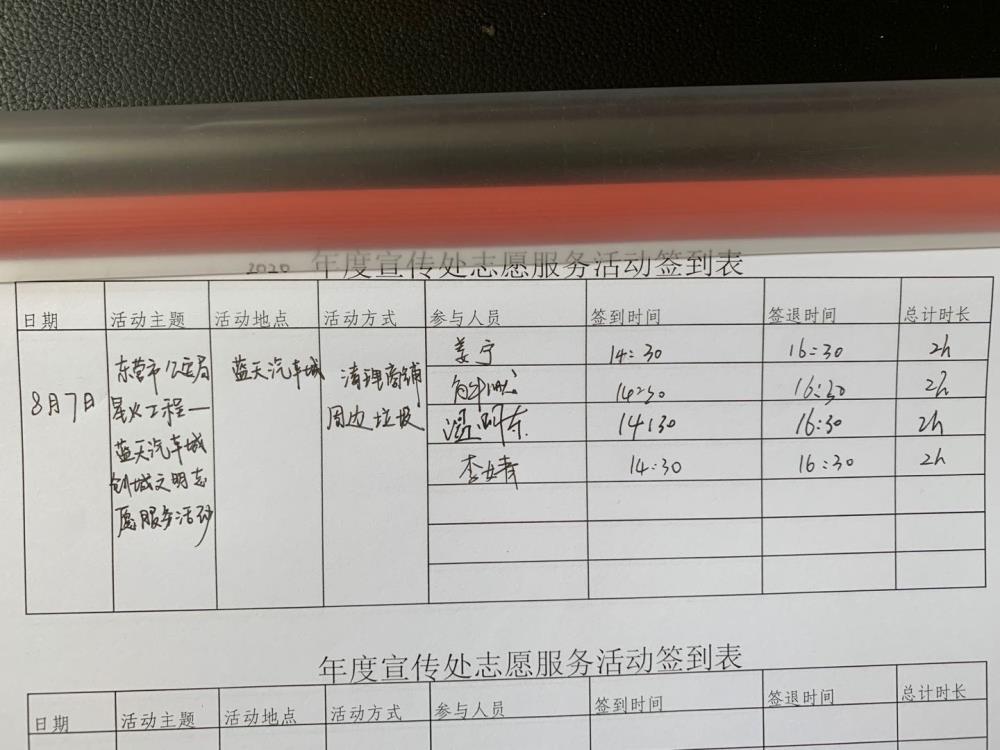 2020 年度宣传处志愿服务活动签到表
日期 活动主题 活动地点 活动方式 参与人员 签到时间 签退时间 总计时长
8月7日
东营市公安局
星火工程—
蓝天汽车城
创城文明志
愿服务活动
蓝天汽车城
清理商铺
周边垃圾
姜宁 14:30 16:30 2h
14:30 16:30 2h
温明东 14:30 16:30 2h
李婧 14:30 16:30 2h
年度宣传处志愿服务活动签到表
日期 活动主题 活动地点 活动方式 参与人员 签到时间 签退时间 总计时长